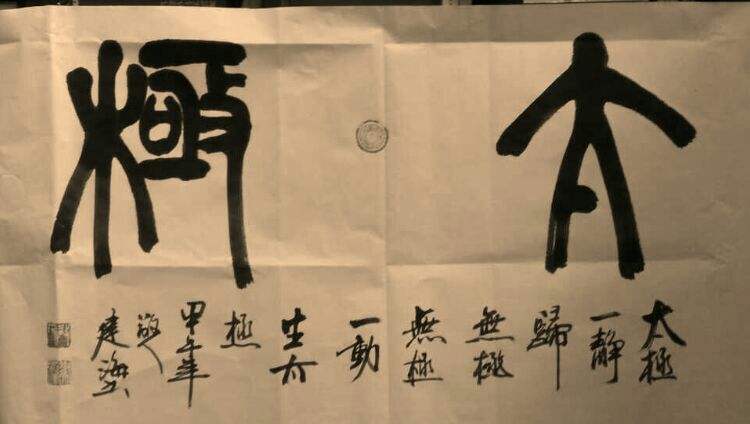 太極
太極
一靜
歸
無極
無極
一動
生太
極
甲午年
建